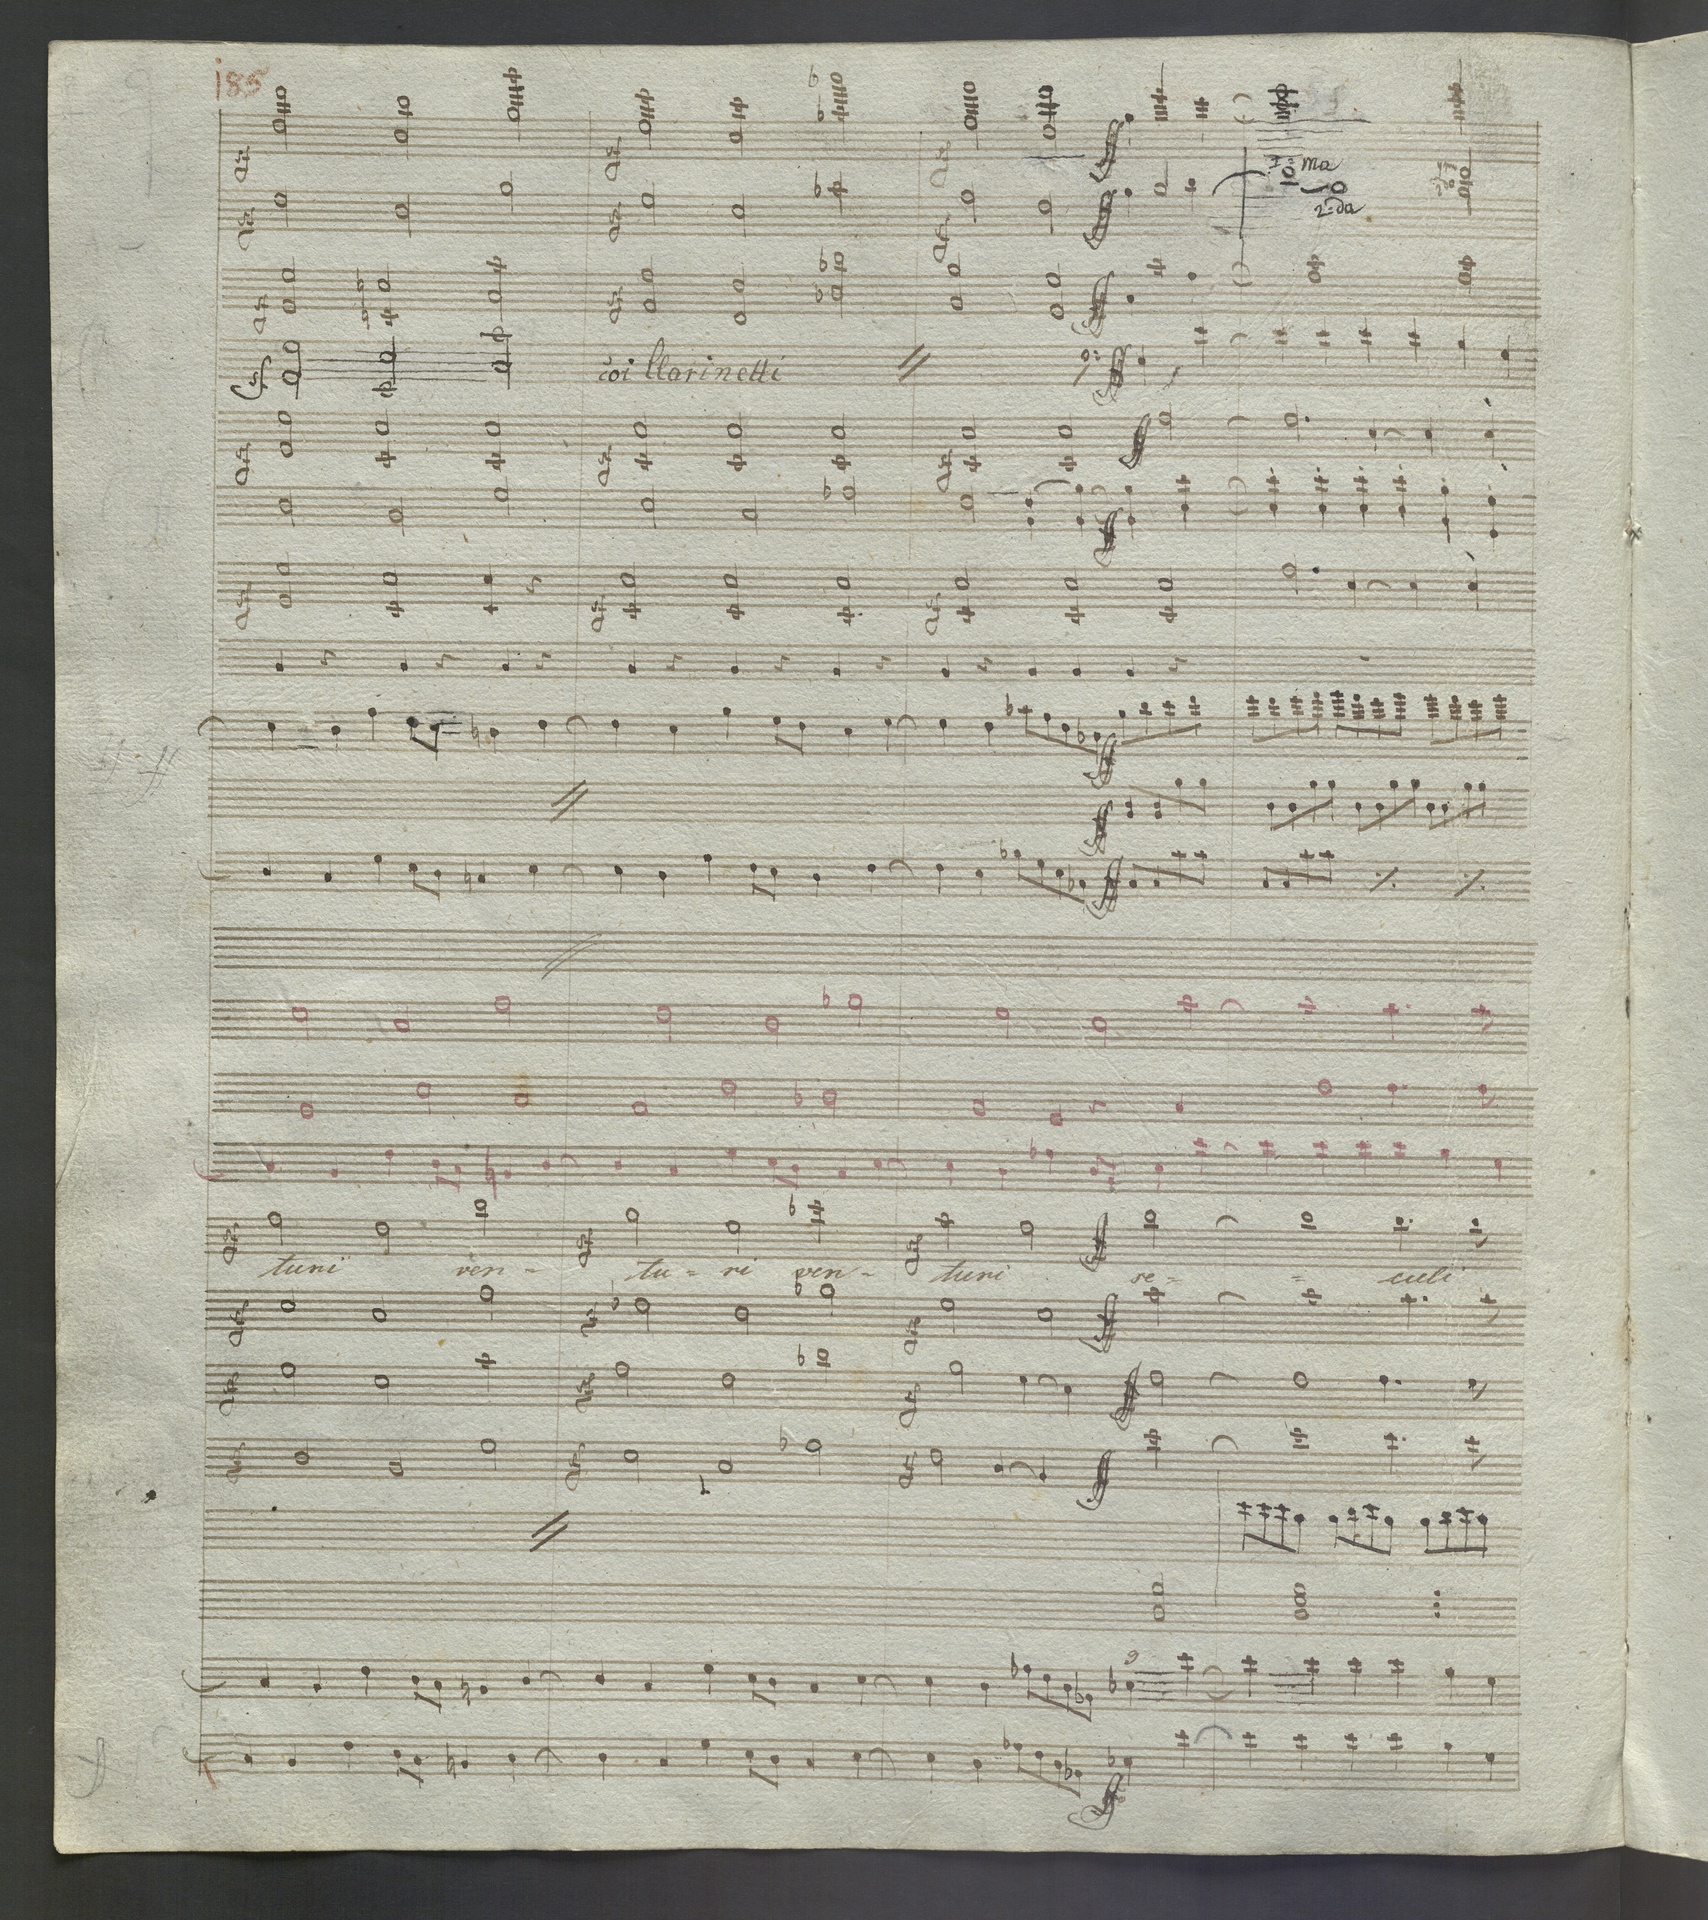 185
I=ma
2=da
coi Clarinetti
turi ven- tu-ri ven- turi se- = culi